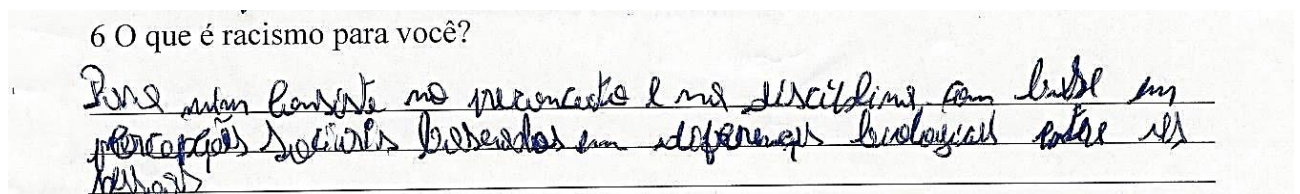 6 O que é racismo para você?
Para mim consiste no preconceito e na disciblina com base em
percepções sociais baseadas em diferenças biologicas entre as
pessoas